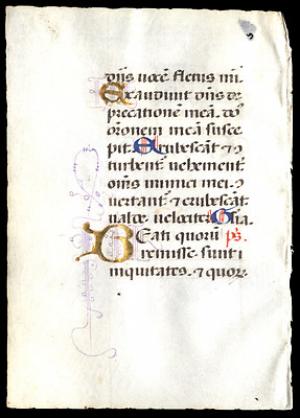 dñs vocē fletus mi.
Exaudiuit dñs de
precationē meā. dñs
orōnem meā susce
pit. Erubescāt ⁊ 9
turbent᷑ uehement᷑
oms̄ inimici mei. 9
uertant᷑ ⁊ erubescāt
ualde uelocit᷑. Gła.
Beati quorū ps̄.
remisse sunt i
iniquitates. ⁊ quor